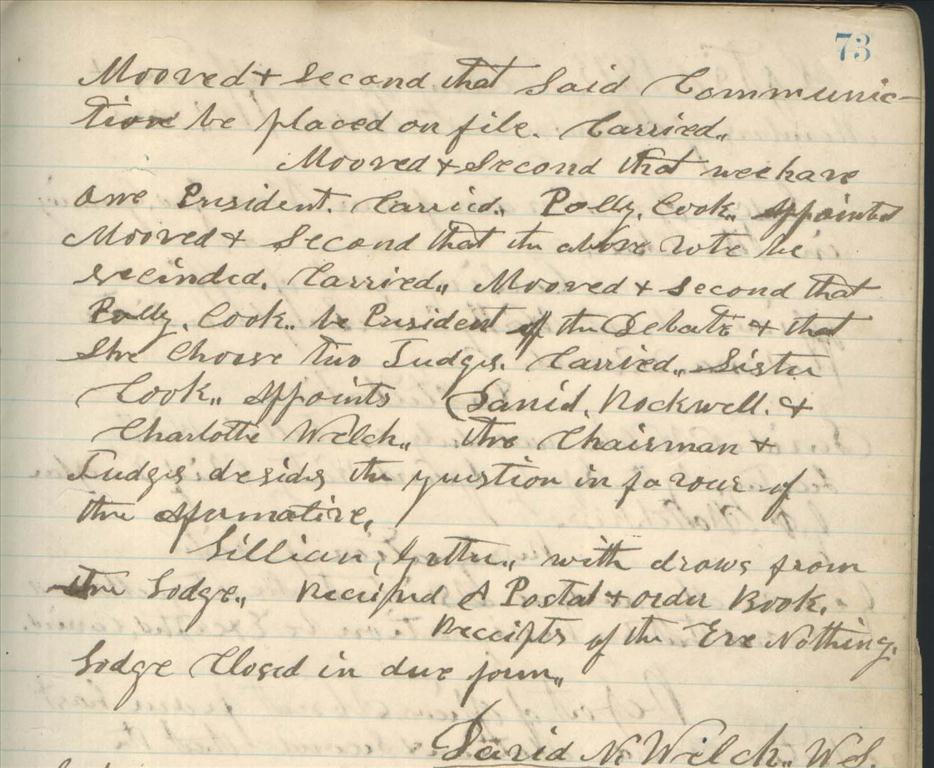 73
Mooved & Second that Said Communic-
tion be placed on file. Carried,,
Mooved & Second that wee have
one President. Carried,, Polly. Cook,, Appointed
Mooved & Second that the above vote be
recinded. Carried,, Mooved & Second that
Polly. Cook,, be President of the Debate & that
She Choose two Judges. Carried,, Sister
Cook,, Appoints David. Rockwell. &
Charlotte Welch,, the Chairman &
Judges desids the question in favour of
the Afirmative,
Lillian, with draws from
the Lodge,, Receipud A Postal & order Book.
Receipts of the Eve Nothing.
Lodge Closed in due form,,
David N. Welch,, W.S.